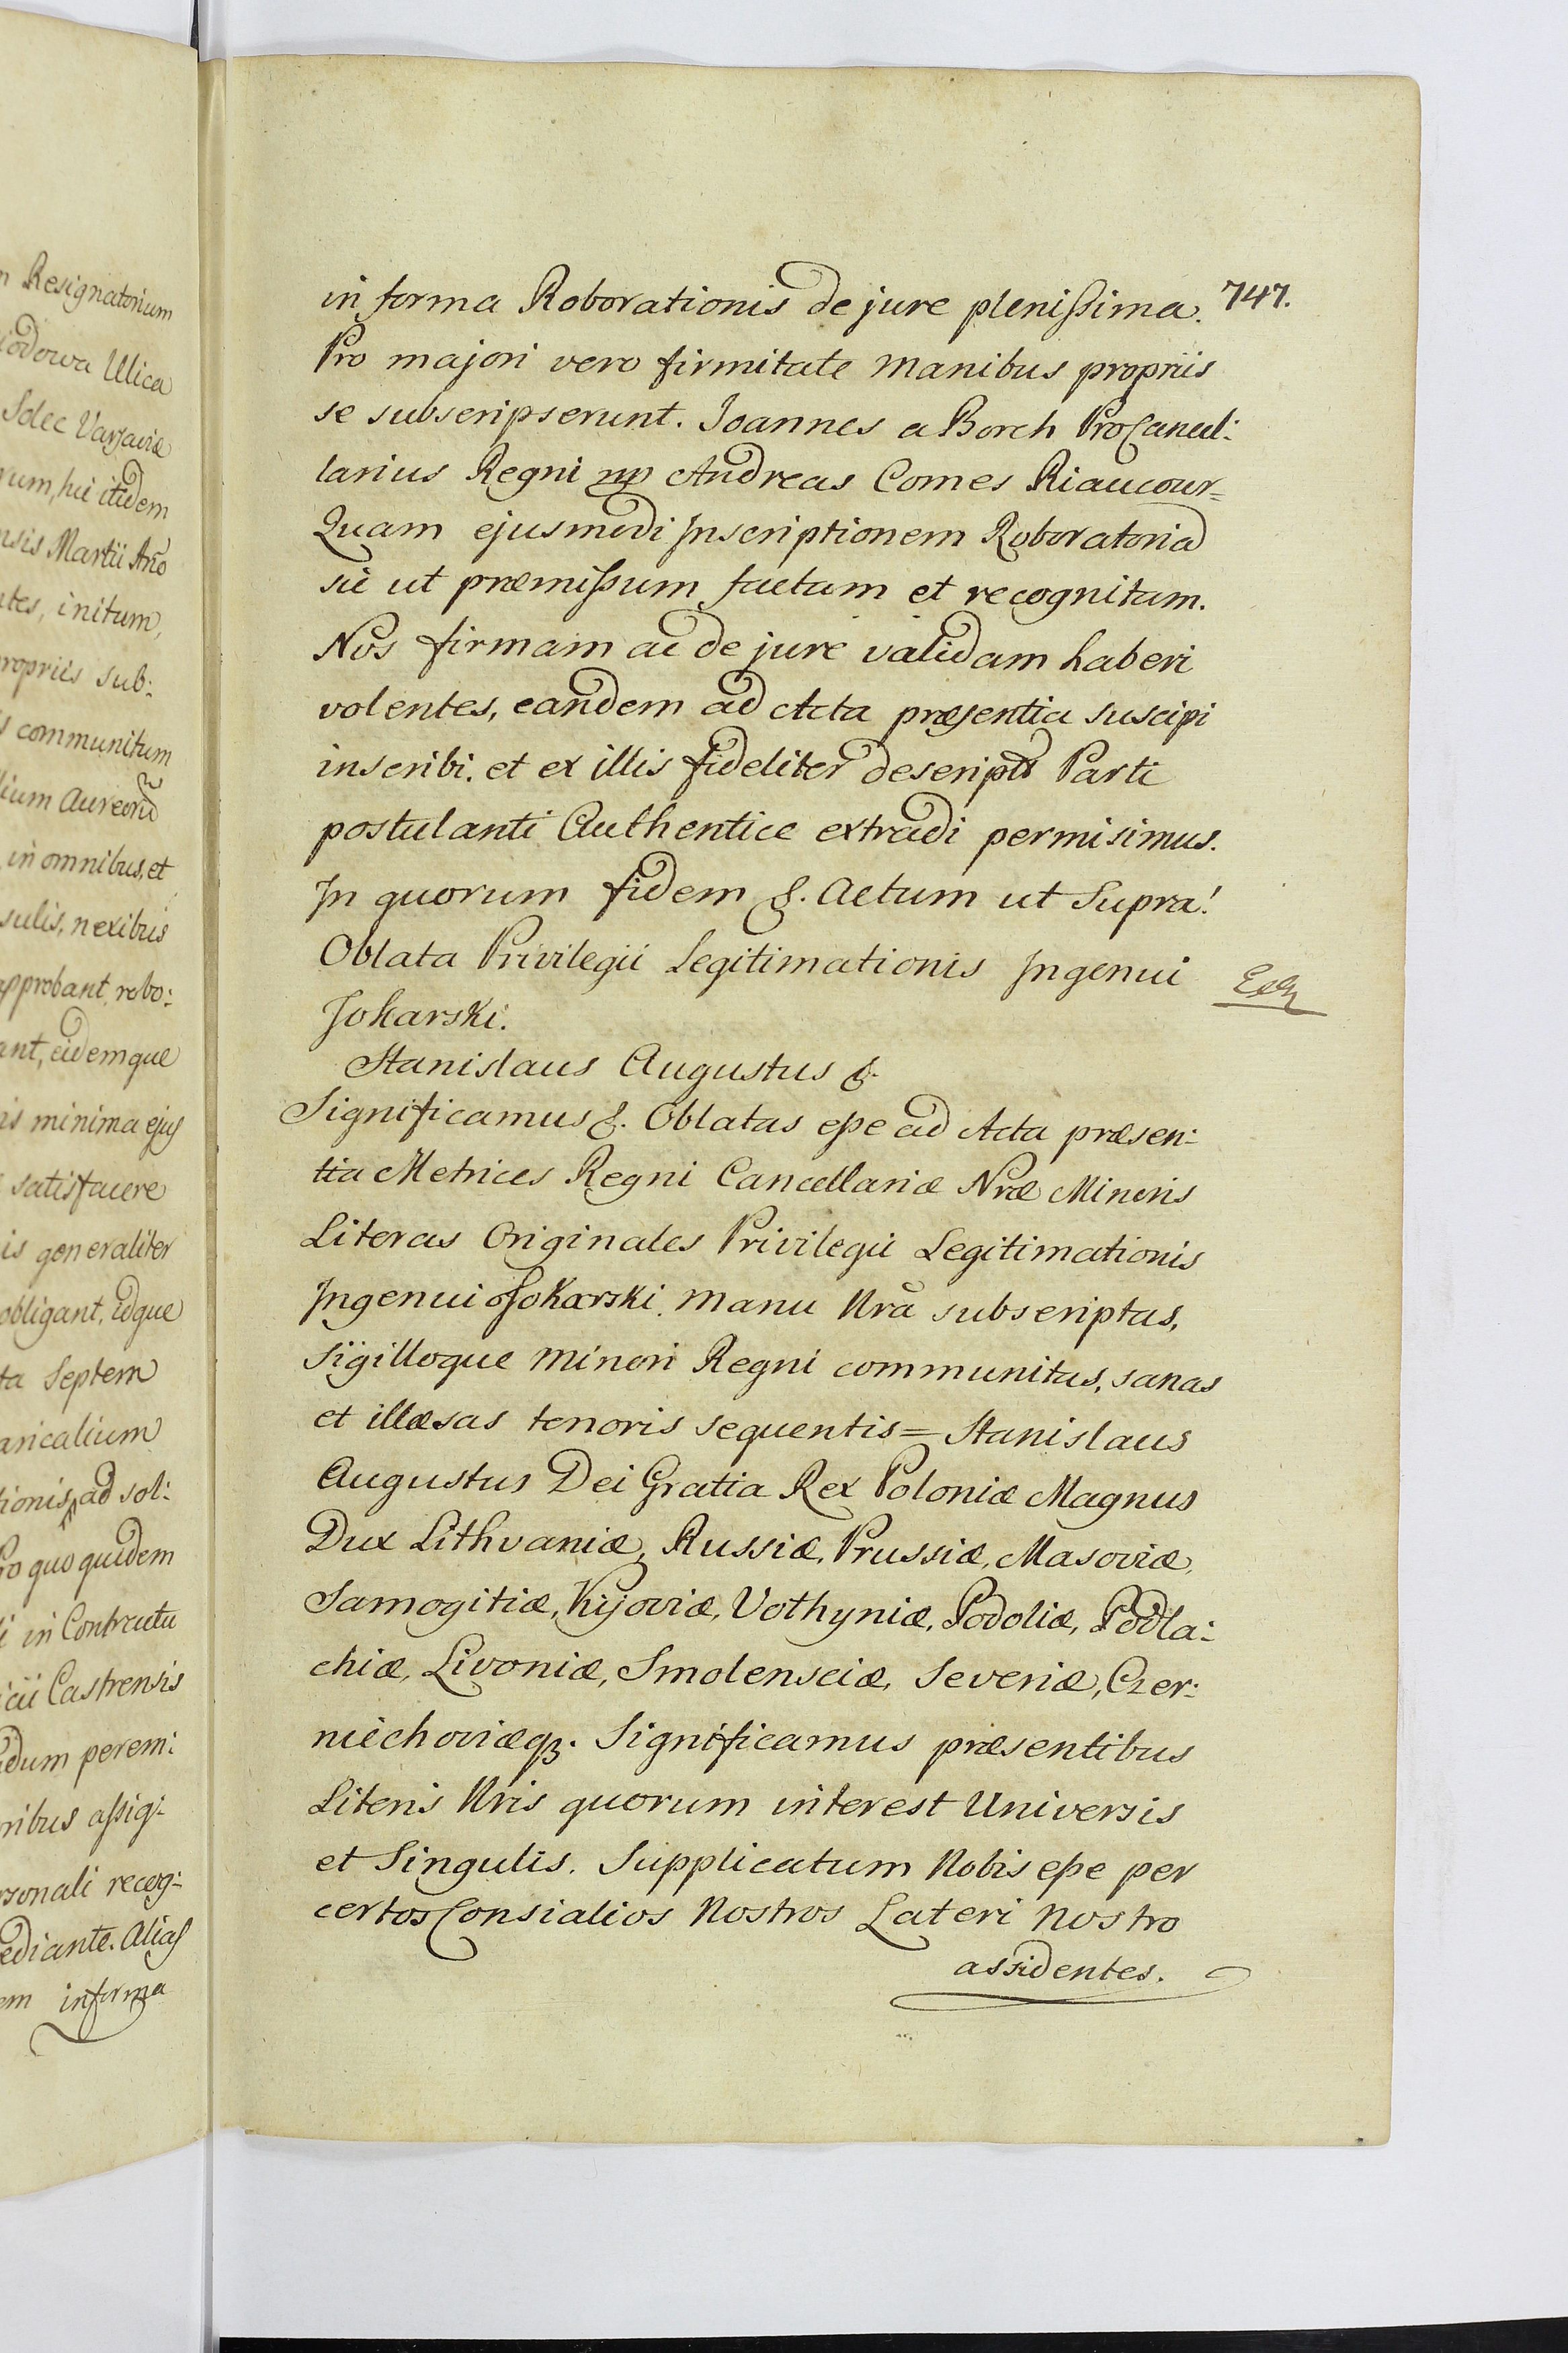 n Resignatorium
iodowa Ulica
Solec Varsaviæ
um, hic itidem
nsis Martii Año
ntes, initum,
ropriis sub:
s communitum
lium Aureorũ
in omnibus, et
sulis, nexibus
approbant, robo:
ant, eidemque
is minima ejus
satisfacere
is generaliter
obligant, idque
ta Septem
aricalium
tionis, ad sol:
Pro quo quidem
i in Contractu
icii Castrensis
dum perem:
nibus assig:
rsonali recog:
ediante. Alias
em informa
747.
in forma Roborationis de jure plenissima.
Pro majori vero firmitate manibus propriis
se subscripserunt. Joannes a Borch ProCancel:
larius Regni mp Andreas Comes Riaucour=
Quam ejusmodi Inscriptionem Roboratoriã
sic ut præmissum factam et recognitam.
Nos firmam ac de jure validam haberi
volentes, eandem ad Acta præsentia suscipi
inscribi, et ex illis fideliter descriptã Parti
postulanti Authentice extradi permisimus.
In quorum fidem &. Actum ut Supra!
Oblata Privilegii Legitimationis Ingenui
Jokarski.
Stanislaus Augustus &.
Significamus &. Oblatas esse ad Acta præsen:
tia Metrices Regni Cancellariæ Nræ Minoris
Literas Originales Privilegii Legitimationis
Ingenui Jokarski manu Nrã subscriptas,
sigilloque minori Regni communitas, sanas
et illæsas tenoris sequentis = Stanislaus
Augustus Dei Gratia Rex Poloniæ Magnus
Dux Lithvaniæ, Russiæ, Prussiæ, Masoviæ,
Samogitiæ, Kijoviæ, Volhyniæ, Podoliæ, Podla:
chiæ, Livoniæ, Smolensciæ, Severiæ, Czer:
niechoviæqȝ. Significamus præsentibus
Literis Nris quorum interest Universis
et Singulis. Supplicatum Nobis esse per
certos Consialios Nostros Lateri Nostro
assidentes.